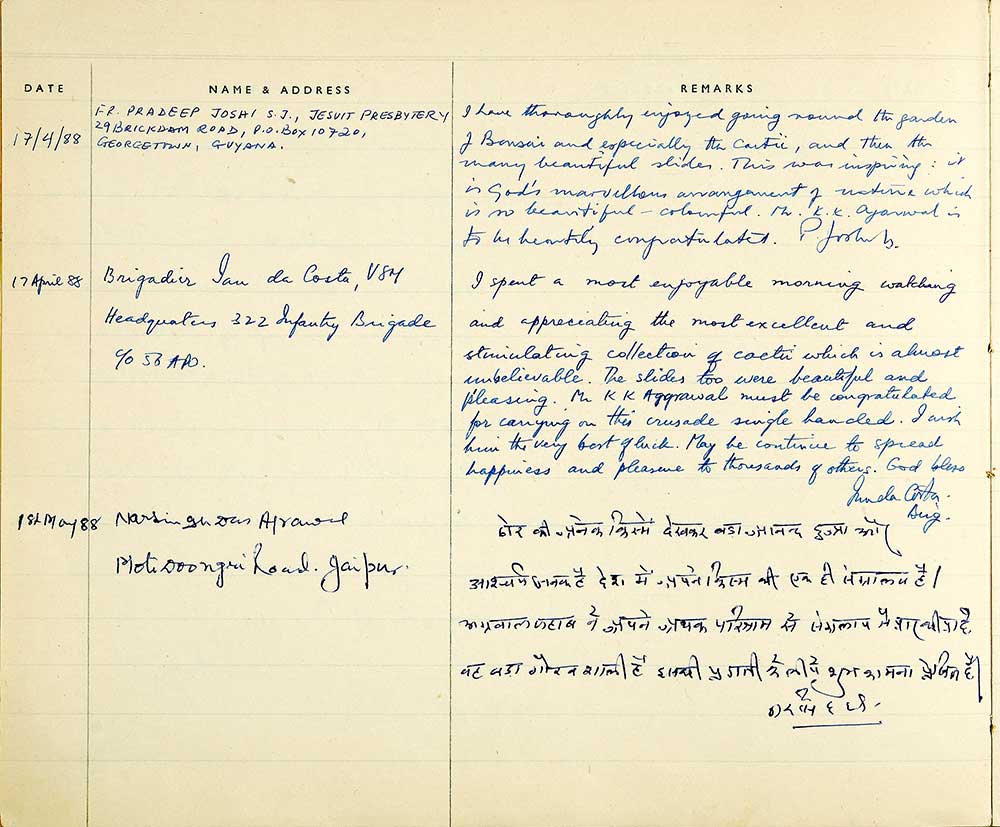 DATE
NAME & ADDRESS
REMARKS
17/4/88
FR. PRADEEP JOSHI S.J., JESUIT PRESBYTERY
29 BRICKDAM ROAD, P.O. BOX 10720,
GEORGETOWN, GUYANA.
I have thoroughly enjoyed going round the garden
of Bonsai and especially the Cactii, and then the
many beautiful slides. This was inspiring : it
is God's marvellous arrangement of nature which
is so beautiful - colourful. Mr. K.K. Agarwal is
to be heartily congratulated. P. Joshi
17 April 88
Brigadier Ian da Costa, VSM
Headquaters 322 Infantry Brigade
c/o 56 APO.
I spent a most enjoyable morning watching
and appreciating the most excellent and
stimulating collection of cactii which is almost
unbelievable. The slides too were beautiful and
pleasing. Mr K K Aggrawal must be congratulated
for carrying on this crusade single handed. I wish
him the very best of luck. May he continue to spread
happiness and pleasure to thousands of others. God bless
Ian da Costa.
Brig.
1st May 88
Narsingh Das Agrawal
Moti Doongri Road. Jaipur.
थोर की अनेक किस्में देखकर बडा आनन्द हुआ और
आश्चर्य जनक है देश में अपने किस्म की एक ही संग्रालय है।
अग्रवाल साहब ने अपने अथक परिश्राम से संग्रालय तैयार कीया है
वह बडा गौरव शाली है इसकी प्रगती के लीये शुभ कामना प्रेषित है।